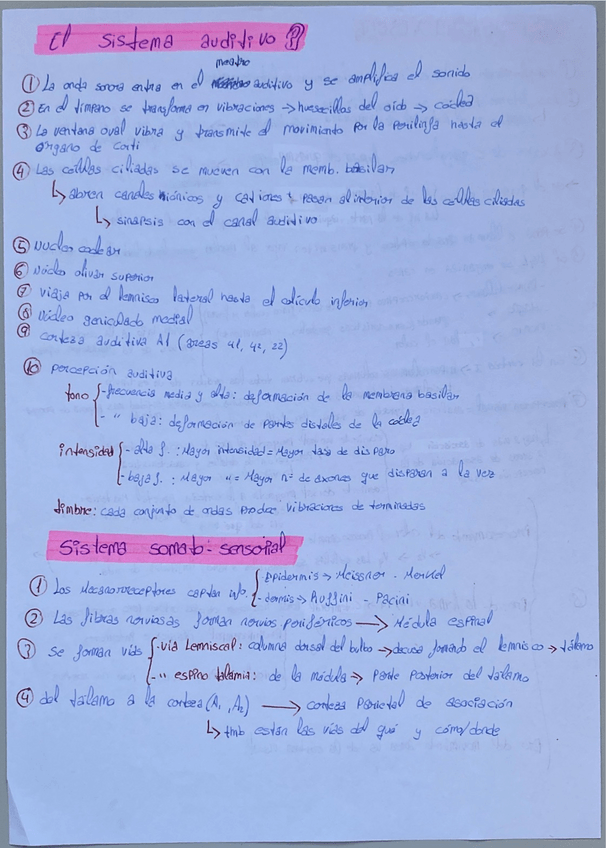 El sistema auditivo
meatro
① La onda sonora entra en el auditivo y se amplifica el sonido
② En el tímpano se transforma en vibraciones → huesecillos del oido → cóclea
③ La ventana oval vibra y transmite el movimiento por la perilinfa hasta el
órgano de corti
④ Las células ciliadas se mueven con la memb. basilar
↳ abren canales iónicos y cationes pasan al interior de las células ciliadas
↳ sinapsis con el canal auditivo
⑤ Nucleo coclear
⑥ Núcleo olivar superior
⑦ Viaja por el lemnisco lateral hasta el colículo inferior
⑧ Núcleo geniculado medial
⑨ corteza auditiva A1 (áreas 41, 42, 22)
⑩ Percepción auditiva
tono { - frecuencia media y alta: deformación de la membrana basilar
- " baja: deformación de partes distales de la cóclea
intensidad { - alta f. : Mayor intensidad = Mayor tasa de disparo
- baja f. : Mayor " = Mayor nº de axones que disparan a la vez
timbre: cada conjunto de ondas produce vibraciones determinadas
Sistema somato-sensorial
① Los Mecanorreceptores captan info. { Epidermis → Meissner - Merkel
- dermis → Ruffini - Pacini
② Las fibras nerviosas forman nervios periféricos → Médula espinal
③ Se forman vías { - vía Lemniscal: columna dorsal del bulbo → decusa formando el lemnisco → tálamo
- " espino talamia: de la médula → parte posterior del tálamo
④ del tálamo a la corteza (A1, A2) → corteza parietal de asociación
↳ tmb están las vías del qué y cómo/donde